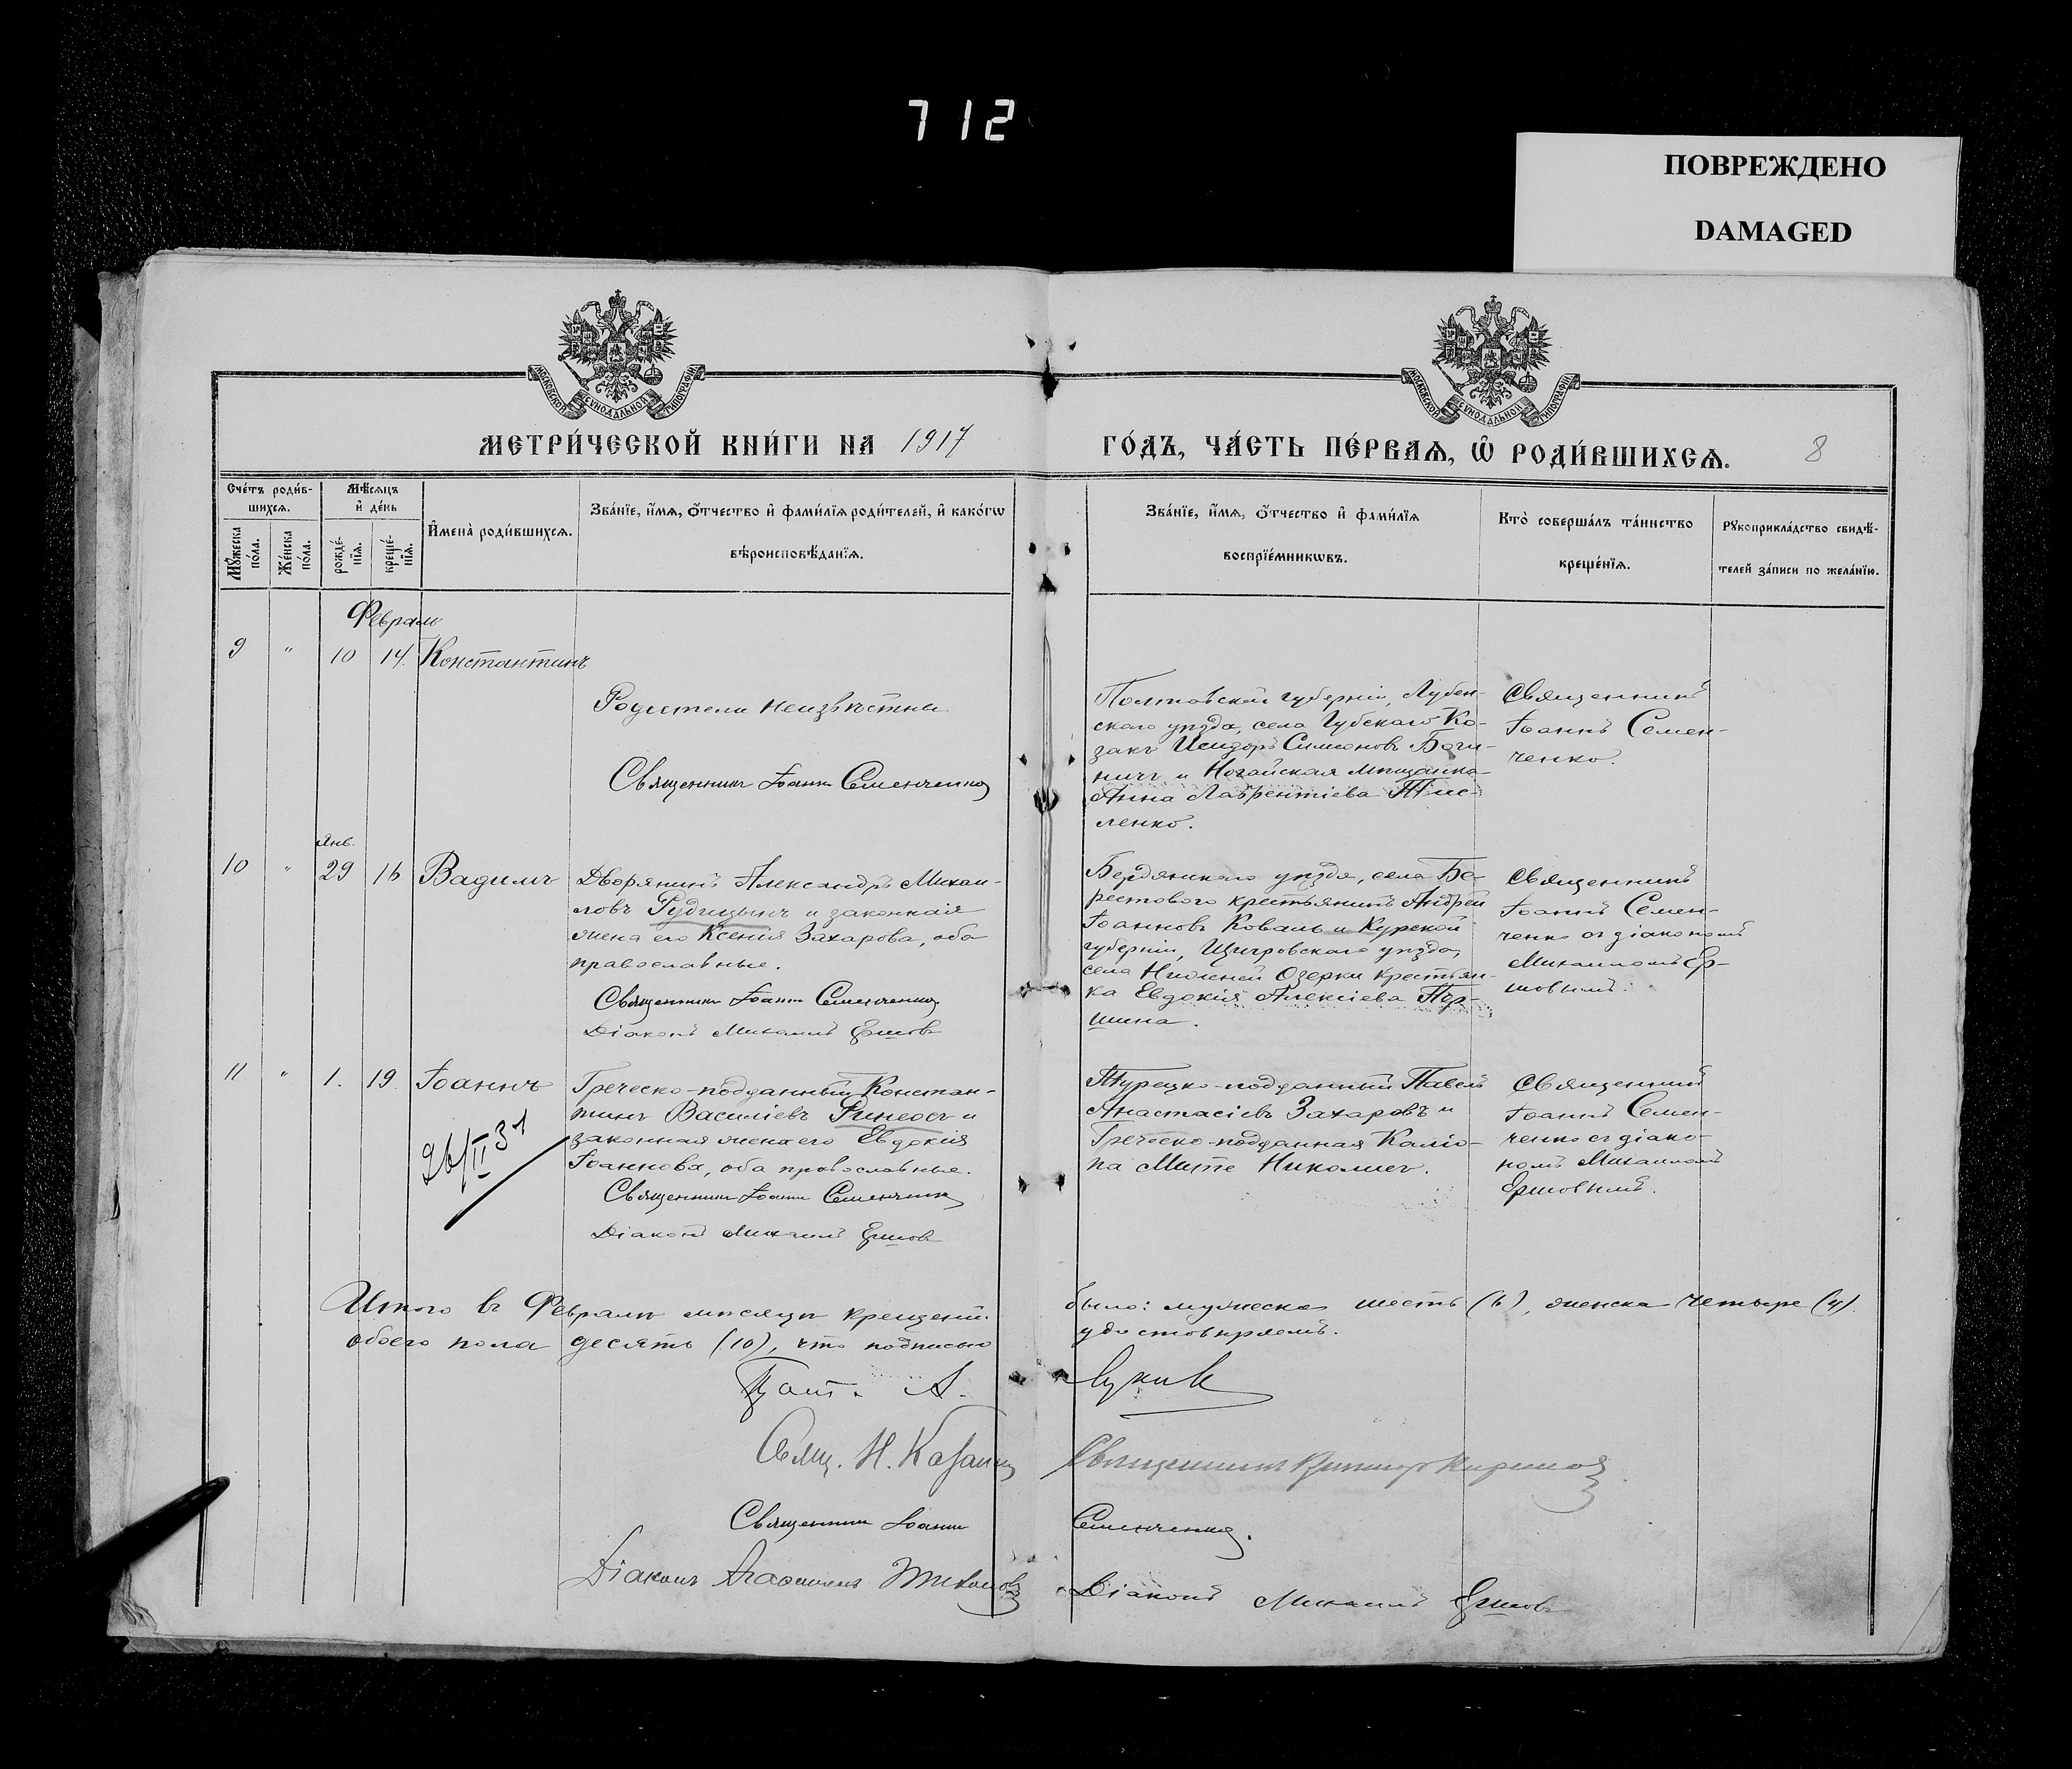 712
ПОВРЕЖДЕНО
DAMAGED
МОСКОВСКОЙ СѴНОДАЛЬНОЙ ТИПОГРАФІИ
МОСКОВСКОЙ СѴНОДАЛЬНОЙ ТИПОГРАФІИ
МЕТРИ́ЧЕСКОЙ КНИ́ГИ НА 1917
ГО́ДЪ, ЧА́СТЬ ПЕ́РВАѦ, Ѡ҆ РОДИ́ВШИХСѦ.
8
Сче́тъ роди́в-
шихсѧ.
Мѣ́сѧцъ
и҆ де́нь
Мꙋ́жеска
по́ла.
Же́нска
по́ла.
рожде́-
нїѧ.
креще́-
нїѧ.
И҆мена̀ роди́вшихсѧ.
Зва́нїе, и҆́мѧ, ѻ҆́тчество и҆ фами́лїѧ роди́телей, и҆ како́гѡ
вѣроисповѣ́данїѧ.
Зва́нїе, и҆́мѧ, ѻ҆́тчество и҆ фами́лїѧ
воспрїе́мникѡвъ.
Кто̀ соверша́лъ та́инство
креще́нїѧ.
Рꙋкоприкла́дство свидѣ́-
телей за́писи по жела́нїю.
Февраль
9 " 10 14 Константинъ
Родители неизвѣстны
Священникъ Іоаннъ Семенченко
Полтавской губерніи, Лубен-
скаго уѣзда, села Губскаго Ко-
закъ Исидоръ Симеоновъ
и Ногайская мѣщанка
Анна Лаврентіева
ленко.
Священникъ
Іоаннъ Семен-
ченко.
Янв.
10 " 29 16 Вадимъ
Дворянинъ Александръ Михаи-
ловъ и законная
жена его Ксенія Захарова, оба
православные.
Священникъ Іоаннъ Семенченко
Діаконъ Михаилъ Ершовъ
Бердянскаго уѣзда, села Бе-
рестоваго крестьянинъ Андрей
Іоанновъ Коваль и Курской
губерніи, Щигровскаго уѣзда,
села Нижней Озерки крестьян-
ка Евдокія Алексіева Пар-
шина.
Священникъ
Іоаннъ Семен-
ченко съ діакономъ
Михаиломъ Ер-
шовымъ.
11 " 1. 19. Іоаннъ
26/II 31
Греческо-подданный Констан-
тинъ Василіевъ Финеосъ и
законная жена его Евдокія
Іоаннова, оба православные.
Священникъ Іоаннъ Семенченко
Діаконъ Михаилъ Ершовъ
Турецко-подданный Павелъ
Анастасіевъ Захаровъ и
Греческо-подданная Каліо-
па Мите Николаиег.
Священникъ
Іоаннъ Семен-
ченко съ діако-
номъ Михаиломъ
Ершовымъ.
Итого въ Февралѣ мѣсяцѣ крещеній
было: мужеска шесть (6), женска четыре (4).
обоего пола десять (10), что подписью
удостовѣряемъ.
Прот. А.
Свящ. Н.
Священникъ
Священникъ Іоаннъ Семенченко.
Діаконъ
Діаконъ Михаилъ Ершовъ